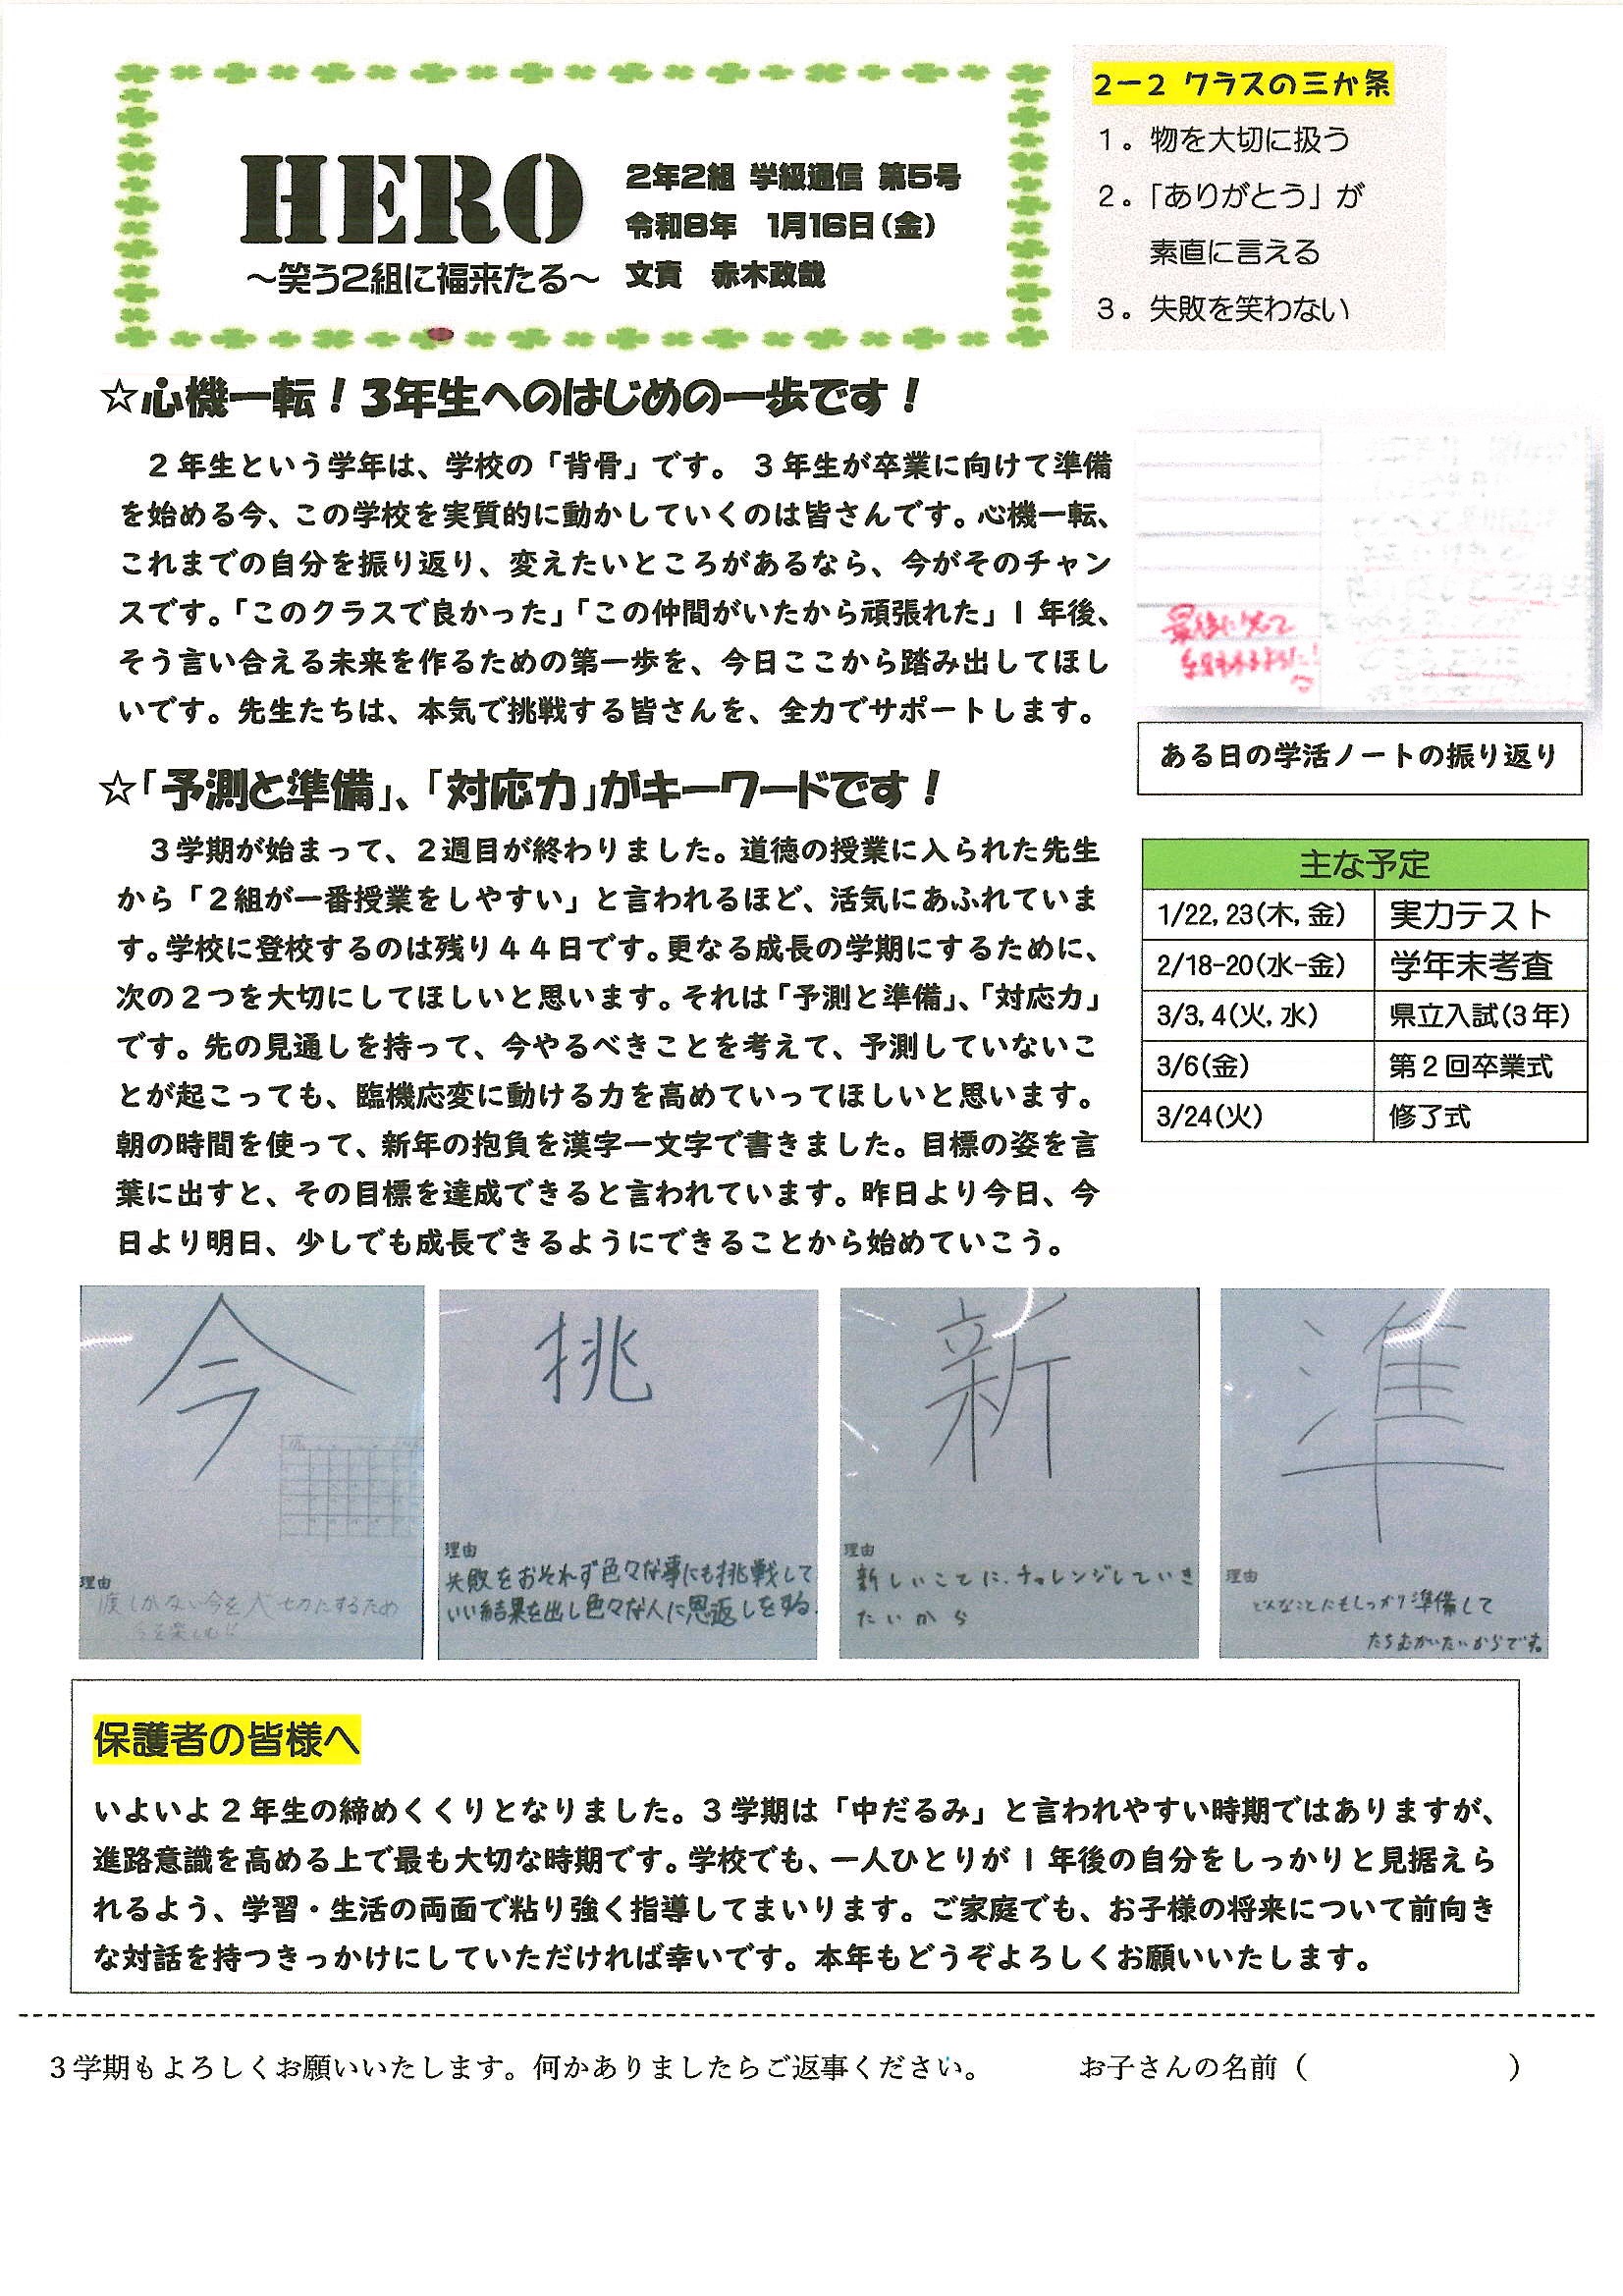 HERO
～笑う2組に福来たる～
2年2組 学級通信 第5号
令和8年 1月16日(金)
文責 赤木政哉
2－2 クラスの三か条
1．物を大切に扱う
2．「ありがとう」が
素直に言える
3．失敗を笑わない
☆心機一転！3年生へのはじめの一歩です！
2年生という学年は、学校の「背骨」です。 3年生が卒業に向けて準備
を始める今、この学校を実質的に動かしていくのは皆さんです。心機一転、
これまでの自分を振り返り、変えたいところがあるなら、今がそのチャン
スです。「このクラスで良かった」「この仲間がいたから頑張れた」1年後、
そう言い合える未来を作るための第一歩を、今日ここから踏み出してほし
いです。先生たちは、本気で挑戦する皆さんを、全力でサポートします。
最後に笑って
ある日の学活ノートの振り返り
☆「予測と準備」、「対応力」がキーワードです！
3学期が始まって、2週目が終わりました。道徳の授業に入られた先生
から「2組が一番授業をしやすい」と言われるほど、活気にあふれていま
す。学校に登校するのは残り44日です。更なる成長の学期にするために、
次の2つを大切にしてほしいと思います。それは「予測と準備」、「対応力」
です。先の見通しを持って、今やるべきことを考えて、予測していないこ
とが起こっても、臨機応変に動ける力を高めていってほしいと思います。
朝の時間を使って、新年の抱負を漢字一文字で書きました。目標の姿を言
葉に出すと、その目標を達成できると言われています。昨日より今日、今
日より明日、少しでも成長できるようにできることから始めていこう。
主な予定
1/22, 23(木, 金) 実力テスト
2/18-20(水-金) 学年末考査
3/3, 4(火, 水) 県立入試(3年)
3/6(金) 第2回卒業式
3/24(火) 修了式
今
理由
度しかない今を大切にするため
今を楽しむ!!
挑
理由
失敗をおそれず色々な事にも挑戦して
いい結果を出し色々な人に恩返しをする.
新
理由
新しいことに、チャレンジしていき
たいから
準
理由
どんなことにもしっかり準備して
たちむかいたいからです。
保護者の皆様へ
いよいよ2年生の締めくくりとなりました。3学期は「中だるみ」と言われやすい時期ではありますが、
進路意識を高める上で最も大切な時期です。学校でも、一人ひとりが1年後の自分をしっかりと見据えら
れるよう、学習・生活の両面で粘り強く指導してまいります。ご家庭でも、お子様の将来について前向き
な対話を持つきっかけにしていただければ幸いです。本年もどうぞよろしくお願いいたします。
3学期もよろしくお願いいたします。何かありましたらご返事ください。 お子さんの名前（ ）